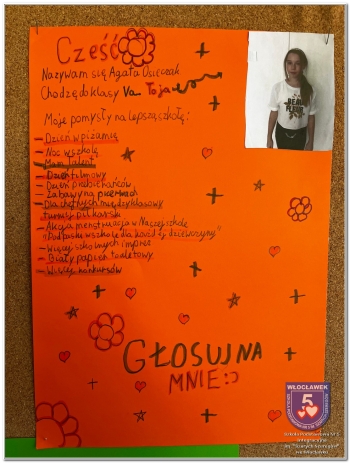 Cześć
Nazywam się Agata Osieczak
Chodzę do klasy Va To ja
Moje pomysły na lepszą szkołę:
- Dzień w piżamie
- Noc w szkole
- Mam Talent
- Dzień filmowy
- Dzień przebierańców
- Zabawy na przerwach
- Dla chętnych międzyklasowy
turniej piłkarski
- Akcja menstruacja w Naszej szkole
"Podpaska w szkole dla każdej dziewczyny"
- Więcej szkolnych imprez
- Biały papier toaletowy
- Więcej konkursów
GŁOSUJ NA
MNIE:)
WŁOCŁAWEK
5
Szkoła Podstawowa Nr 5
Integracyjna
we Włocławku